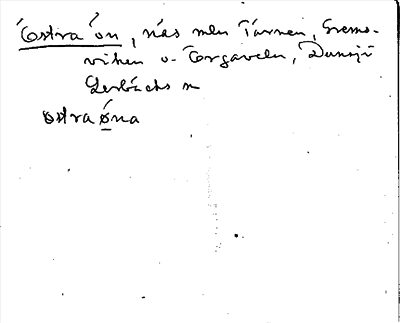 Östra ön, näs mln Tärnen, Grems-
viken o. Torgaveln, Dansjö
Lerbäcks sn
östra øna